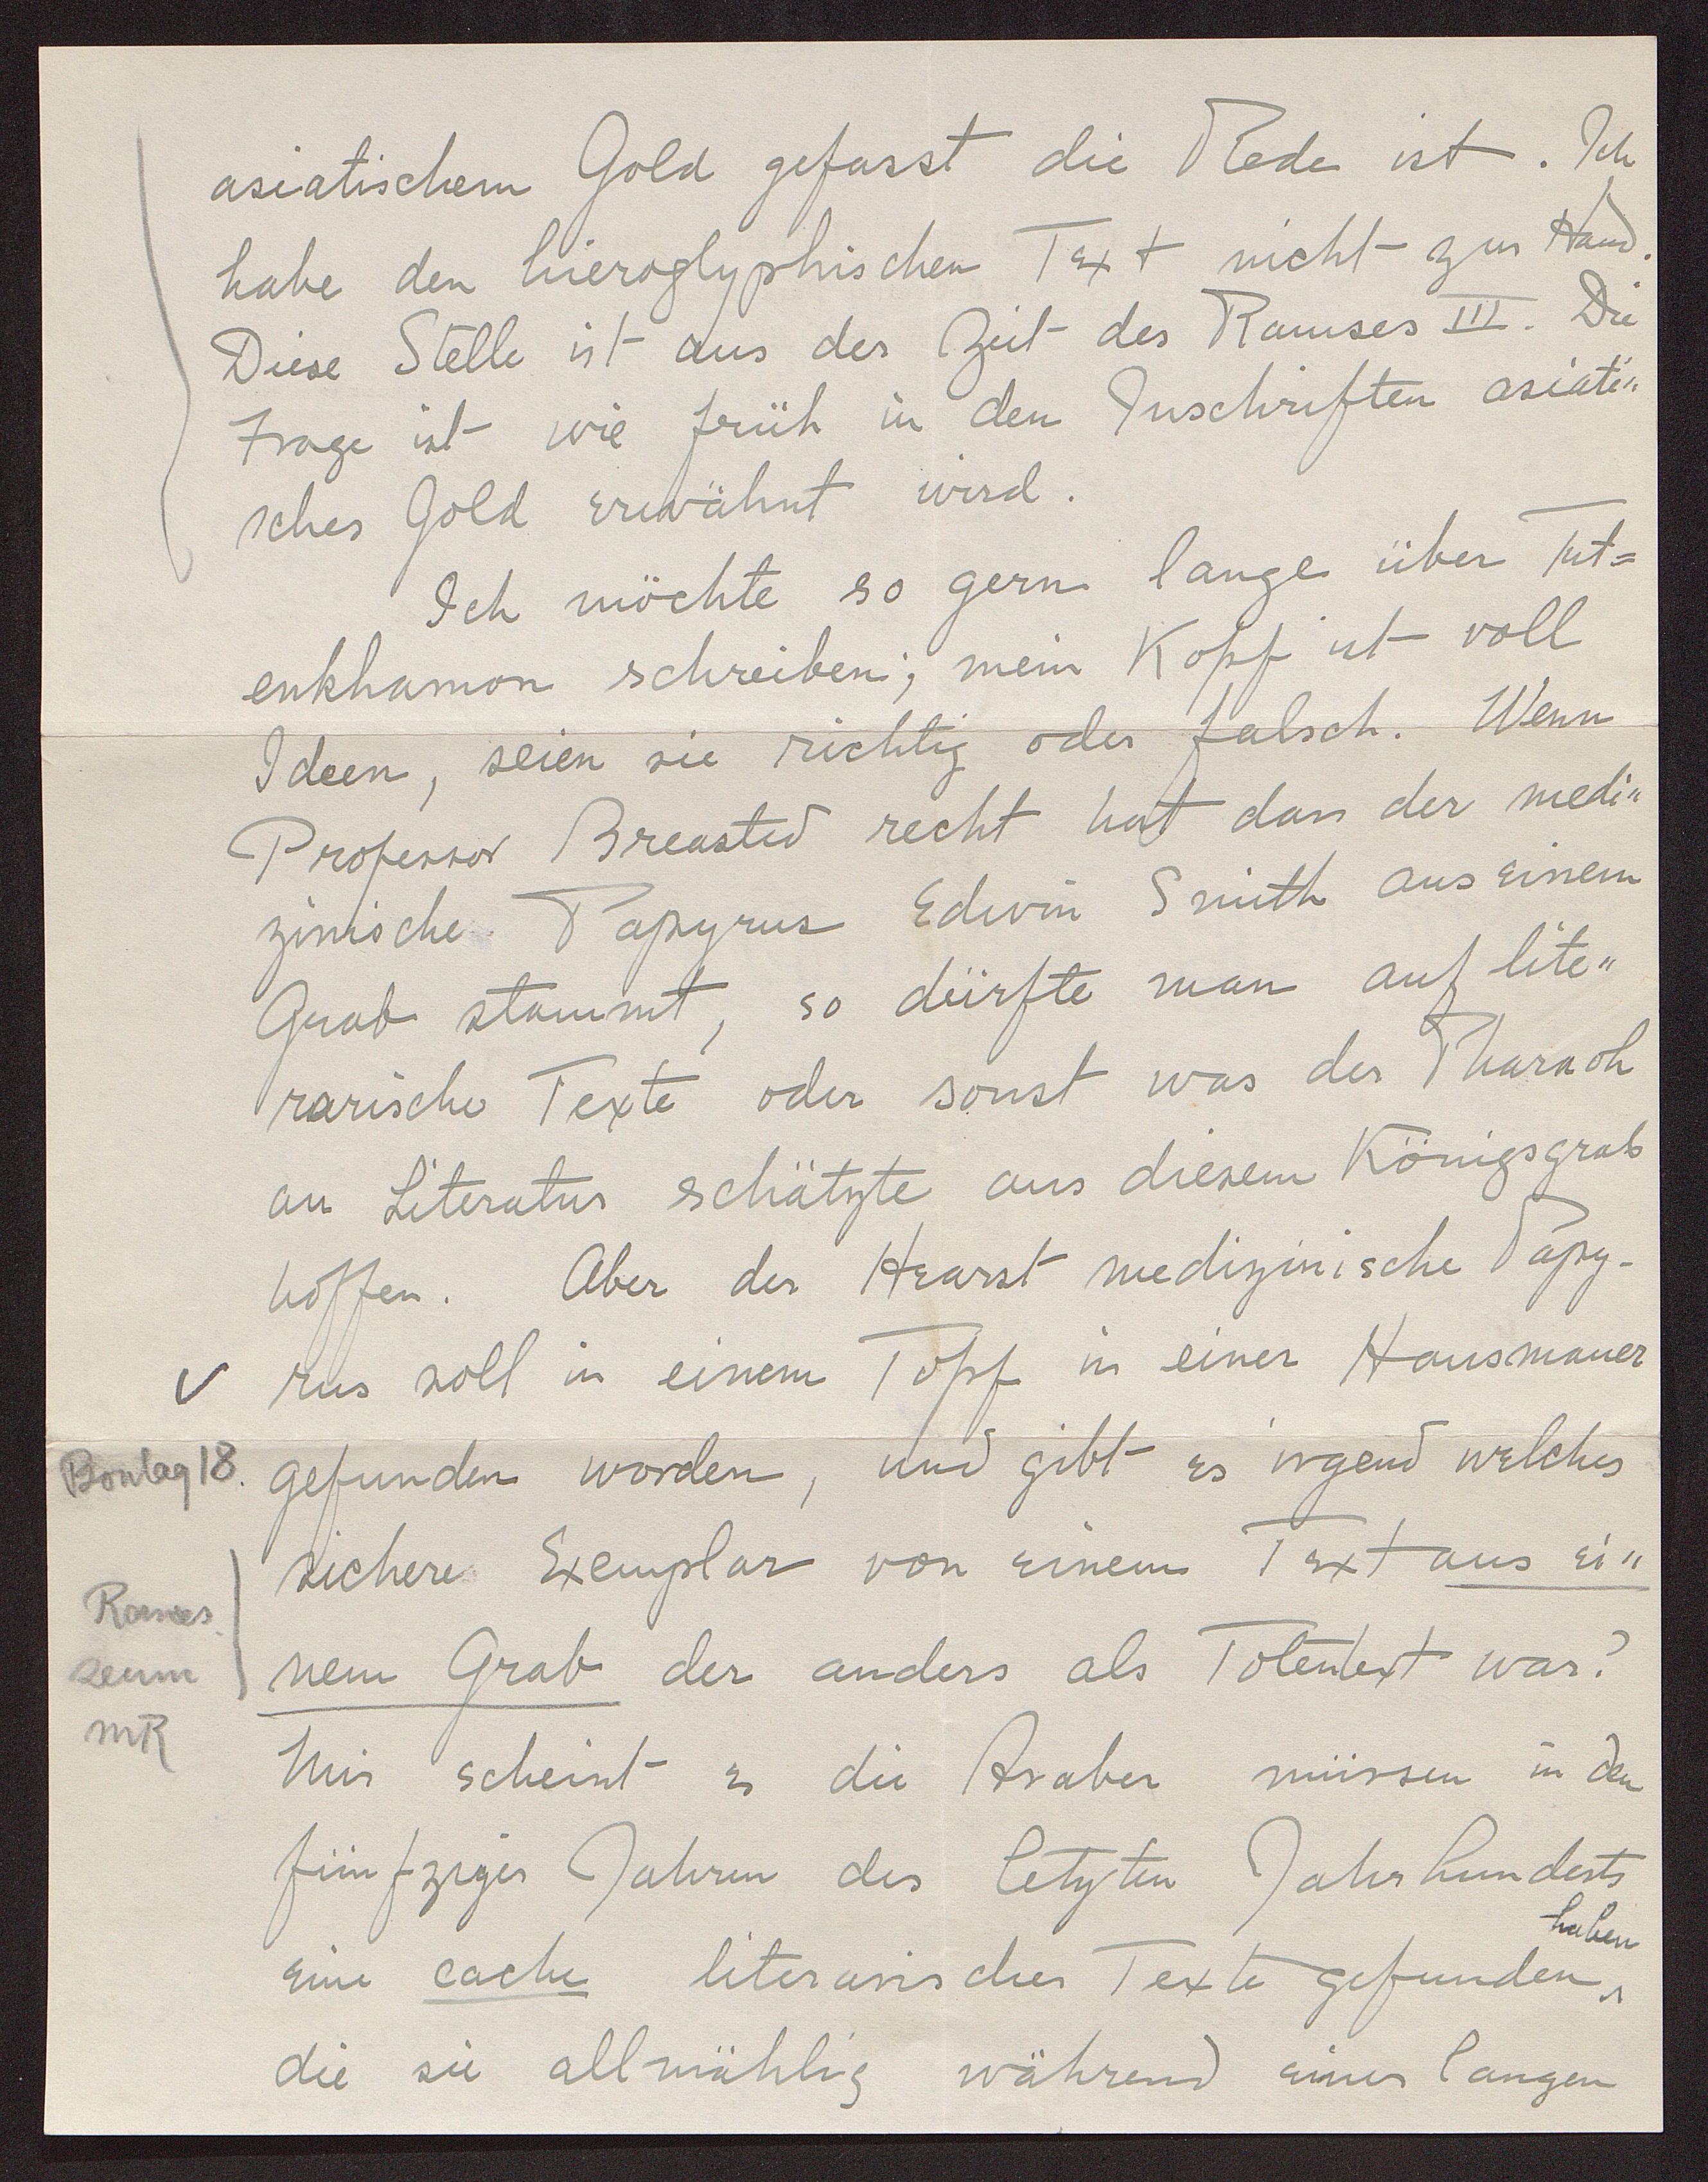 asiatischem Gold gefasst die Rede ist. Ich
habe den hieroglyphischen Text nicht zur Hand.
Diese Stelle ist aus der Zeit des Ramses III. Die
Frage ist wie früh in den Inschriften asiati"
sches Gold erwähnt wird.
Ich möchte so gern lange über Tut=
enkhamon schreiben; mein Kopf ist voll
Ideen, seien sie richtig oder falsch. Wenn
Professor Breasted recht hat dass der medi"
zinische Papyrus Edwin Smith aus einem
Grab stammt, so dürfte man auf lite"
rarische Texte oder sonst was der Pharaoh
an Literatur schätzte aus diesem Königsgrab
hoffen. Aber der Hearst medizinische Papy-
✓ rus soll in einem Topf in einer Hausmauer
Boulaq 18. gefunden worden, und gibt es irgend welches
sichere Exemplar von einem Text aus ei"
Rames
nem Grab der anders als Totentext war?
seum
MR
Mir scheint es die Araber müssen in den
fünfziger Jahren des letzten Jahrhunderts
haben
eine cache literarischer Texte gefunden,
die sie allmählig während einer langen